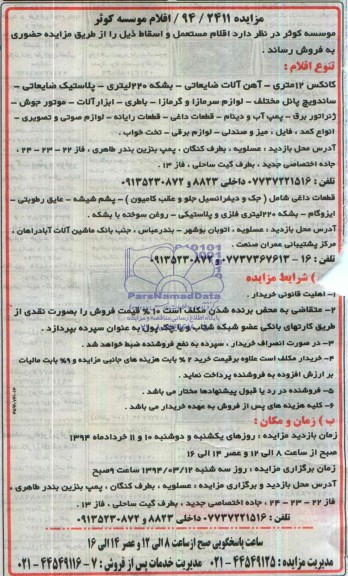 مزایده ۲۴۱۱ / ۹۴ / اقلام موسسه کوثر
موسسه کوثر در نظر دارد اقلام مستعمل و اسقاط ذیل را از طریق مزایده حضوری
به فروش رساند .
تنوع اقلام :
کانکس ۱۲متری - آهن آلات ضایعاتی - بشکه ۲۲۰لیتری - پلاستیک ضایعاتی -
ساندویچ پانل مختلف - لوازم سرمازا و گرمازا - باطری - ابزارآلات - موتور جوش -
ژنراتور برق - پمپ آب و دینام - قطعات داغی - قطعات رایانه - لوازم صوتی و تصویری -
انواع کمد ، فایل ، میز و صندلی - لوازم برقی - تخت خواب .
آدرس محل بازدید : عسلویه ، بطرف کنگان ، پمپ بنزین بندر طاهری ، فاز ۲۲ - ۲۳ - ۲۴ ،
جاده اختصاصی جدید ، بطرف گیت ساحلی ، فاز ۱۳ .
تلفن : ۰۷۷۳۷۲۲۱۵۱۶ داخلی ۸۸۲۳ و ۰۹۱۳۵۲۳۰۸۷۲
قطعات داغی شامل ( جک و دیفرانسیل جلو و عقب کامیون ) - پشم شیشه - عایق رطوبتی -
ایزوگام - بشکه ۲۲۰لیتری فلزی و پلاستیکی - روغن سوخته با بشکه .
آدرس محل بازدید : عسلویه ، اتوبان بوشهر - بندرعباس ، جنب بانک ماشین آلات آبادراهان ،
مرکز پشتیبانی عمران صنعت .
تلفن : ۱۶ - ۰۷۷۳۷۳۶۷۶۱۳ و ۰۹۱۳۵۲۳۰۸۷۲
) شرایط مزایده
۱- اهلیت قانونی خریدار .
۲- متقاضی به محض برنده شدن مکلف است ۱۰% قیمت فروش را بصورت نقدی از
طریق کارتهای بانکی عضو شبکه شتاب و یا چک پول به عنوان سپرده بپردازد .
۳- در صورت انصراف خریدار ، سپرده به نفع فروشنده ضبط خواهد شد .
۴- خریدار مکلف است علاوه برقیمت خرید ۲ % بابت هزینه های جانبی مزایده و ۹% بابت مالیات
بر ارزش افزوده به فروشنده پرداخت نماید .
۵- فروشنده در رد یا قبول پیشنهادها مختار می باشد .
۶- کلیه هزینه های پس از فروش به عهده خریدار می باشد .
ب ) زمان و مکان :
زمان بازدید مزایده : روزهای یکشنبه و دوشنبه ۱۰ و ۱۱ خردادماه ۱۳۹۴
صبح از ساعت ۸ الی ۱۲ و عصر ۱۴ الی ۱۶
زمان برگزاری مزایده : روز سه شنبه ۱۳۹۴/۰۳/۱۲ ساعت ۹صبح
آدرس محل بازدید و برگزاری مزایده : عسلویه ، بطرف کنگان ، پمپ بنزین بندر طاهری ،
فاز ۲۲ - ۲۳ - ۲۴ ، جاده اختصاصی جدید ، بطرف گیت ساحلی ، فاز ۱۳ .
تلفن : ۰۷۷۳۷۲۲۱۵۱۶ داخلی ۸۸۲۳ و ۰۹۱۳۵۲۳۰۸۷۲
ساعت پاسخگویی صبح از ساعت ۸ الی ۱۲ و عصر ۱۴ الی ۱۶
مدیریت مزایده : ۴۴۵۴۹۱۲۵ - ۰۲۱ مدیریت خدمات پس از فروش : ۷ - ۴۴۵۴۹۱۱۶ - ۰۲۱
ParsNamadData
پایگاه اطلاع رسانی مناقصه و مزایده